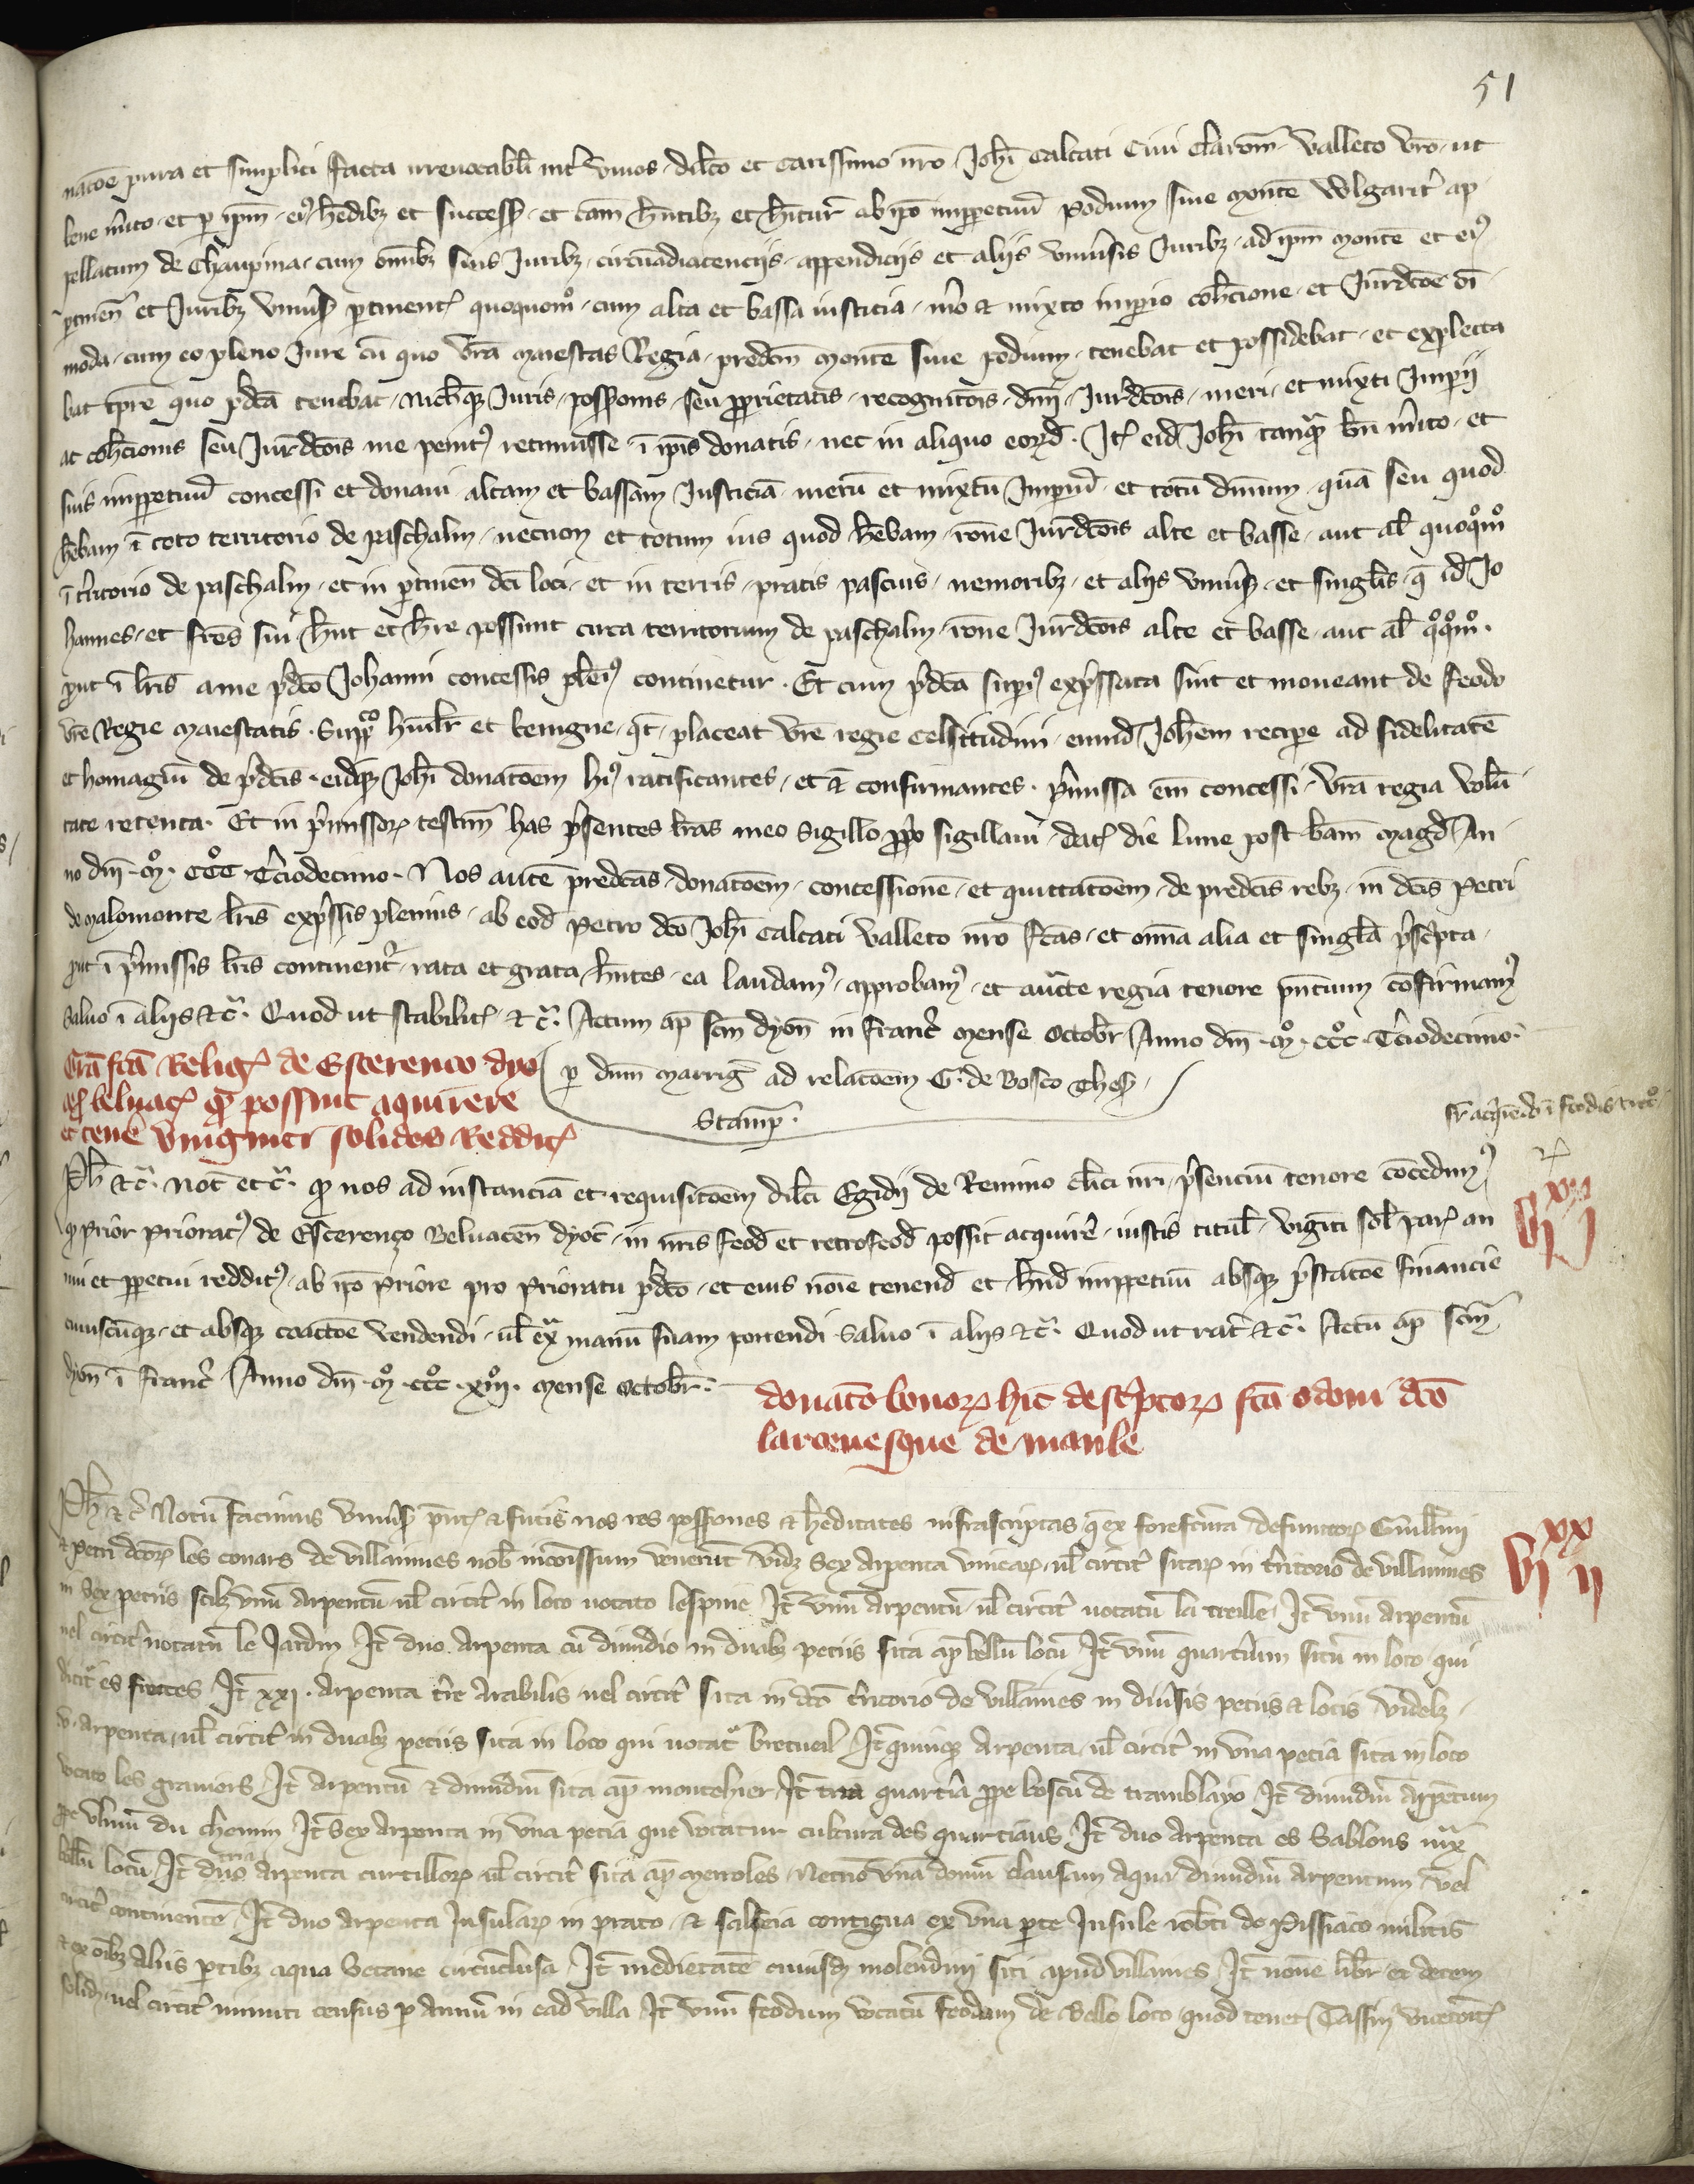 51
natōe pura et simplici facta irrevocabili int̄ vivos dilc̄o et carissimo nr̄o Joh̄i Calcati Civi claromn̄ valleto vr̄o ut
bene m̄ito et p ip̄m eiꝰ h̄edibꝫ et success̄ et cām h̄ntibꝫ et h̄itur̄ ab ip̄o imp̱petuū podium sive montē wlgarit̄ ap
pellatum de Chaupina cum om̄ibꝫ suis Juribꝫ circūadiacenciis appendiciis et aliis univ̄sis Juribꝫ ad ip̄m montē et eiꝰ
ptinen̄ et Juribꝫ univ̄s̄ ptinent̄ quoquom̊ cum alta et bassa iusticia m̄o et mixto imp̱io coh̄cione et Jur̄dc̄oe oī
moda cum eo pleno Jure cū quo vr̄a maiestas Regia predc̄m montē sive podium tenebat et possidebat et explecta
bat tp̄re quo p̄dc̄a tenebat nichilqꝫ Juris poss̄ionis seu p̱prietatis recognitōis dn̄ii Jur̄dc̄ois meri et mixti Imp̱ii
ac coh̄cionis seu Jur̄dc̄ois me penitꝰ retinuisse ī ip̄is donatis nec in aliquo eorꝫd̄ It̄ eid̄ Joh̄i tanq̄ bn̄ m̄ito et
suis imp̱petuū concessi et donavi altam et bassam Justiciā merū et mixtū Imp̱iū et totū dn̄ium quā seu quod
h̄ebam ī toto territorio de paschalin necnon et totum ius quod h̄ebam rōne Jur̄dc̄ois alte et basse aut al̄ quoqm̊
ī t̄ritorio de paschalin et in ptinen̄ dc̄i loci et in terris pratis pascuis nemoribꝫ et aliis univ̄s̄ et singl̄is q̄ id̄ Jo
hannes et fr̄es sui h̄nt et h̄re possunt circa territorium de paschalin rōne Jur̄dc̄ois alte et basse aut al̄ q̊qm̊
put ī lr̄is a me p̄dc̄o Johanni concessis pleniꝰ continetur Et cum p̄dc̄a sup̱iꝰ exp̄ssata sint et moveant de feodo
vr̄e Regie maiestatis Suppc̊o hūilr̄ et benigne qt̄ placeat vr̄e regie celsitudini eund̄ Joh̄em recipe ad fidelitatē
et homagiū de p̄dc̄is eidqꝫ Joh̄i donatōem hiꝰ ratificantes et ē confirmantes p̄missa em̄ concessi vr̄a regia volū
tate retenta Et in p̄missorꝝ testim̄ has p̄sentes lr̄as meo Sigillo pp̄o sigillavi dat̄ die lune post bam̄ magd̄ An
no dn̄i m̊ ccc̊ t̄ciodecimo Nos autē predc̄as donatōem concessionē et quittatōem de predc̄is rebꝫ in dc̄is Petri
de malomonte lr̄is exp̄ssis plenius ab eod̄ Petro dc̄o Joh̄i Calcati valleto nr̄o fc̄as et om̄ia alia et singl̄a p̄sc̄pta
put ī p̄missis lr̄is continent̄ rata et grata h̄ntes ea laudamꝰ approbamꝰ et auc̄te regia tenore pn̄cium cōfirmamꝰ
Salvo ī aliis etc̄ Quod ut stabilit̄ etc̄ Actum ap̄ sc̄m dyon̄ in Franc̄ mense Octobr̄ Anno dn̄i m̊ ccc̊ t̄ciodecimo
Gr̄a fc̄a Reliḡ de Esterenco dyo
c̄ belvac̄ q̄ possint aquirere
et tenē viginti solidos Reddit̄
p dn̄m Marriḡ ad relatōem G. de Bosco Thes̄
Stamp̄
sr̄ acq̄rēdo ī feodis retro
Ph̄ etc̄ Not̄ etc̄ qꝫ nos ad instanciā et requisitōem dilc̄i Egidii de Remino cl̄ici nr̄i p̄senciū tenore cōcedimꝰ
q Prior Prioratꝰ de Esterenço Belvacen̄ dyoc̄ in nr̄is feod̄ et retrofeod̄ possit acquirē iustis titul̄ viginti sol̄ par̄ an
nui et pp̱etui redditꝰ ab ip̄o Priore pro Prioratu p̄dc̄o et eius nōie tenend̄ et h̄nd̄ imp̱petuū absqꝫ p̄statōe financie
cuiuscūqꝫ et absqꝫ coactōe vendendi ul̄ ex̄ manū suam ponendi Salvo ī aliis etc̄ Quod ut rat̄ etc̄ Actū ap̄ sc̄m
dyon̄ ī Franc̄ Anno dn̄i m̊ ccc̊ xiii̊ mense Octobr̄
vi xx j
donatō bonorꝝ hic descp̄torꝝ fc̄a odoni dc̄o
larcenesque de maule
Ph̄ etc̄ Notū facimus univ̄s̄ pn̄t̄ et futīs nos res poss̄iones et h̄editates infrascriptas q̄ ex forefc̄ura defunctorꝝ Guill̄mi
et Petri dc̄orꝝ les conars de villaines nob̄ in cōissum venerūt vidꝫ Sex Arpenta vinearꝝ ul̄ circit̄ sitarꝝ in t̄ritorio de villaines
in Sex peciis scilꝫ unū Arpentū ul̄ circit̄ in loco vocato lespine It̄ unū Arpentū ul̄ circit̄ vocatū la treille It̄ unū Arpentū
vel circit̄ vocatū le Jardin It̄ duo Arpenta cū dimidio in duabꝫ peciis sita ap̄ bellū locū It̄ unū quart̄ium sitū in loco qui
dicit̄ es frectes It̄ xxi. Arpenta t̄re Arabilis vel circit̄ sita in dc̄o t̄ritorio de villaines in div̄sis peciis et locis videlꝫ
v. arpenta ul̄ circit̄ in duabꝫ peciis sita in loco qui vocat̄ bretueil It̄ quinqꝫ Arpenta ul̄ circit̄ in una pecia sita in loco
vocato les graviers It̄ Arpentū et dimidiū sita ap̄ montehier It̄ tria quart̄ia pp̄e boscū de tramblayo It̄ dimidiū arpētum
pp̄e ulmū du chemin It̄ Sex Arpenta in una pecia que vocatur cultura des quartiaus It̄ duo Arpenta es Sablons iux̄
bellū locū It̄ duo arpenta curtillorꝝ ul̄ circit̄ sita ap̄ merroles Necnō unā domū clausam aqua dimidiū arpentum vel
circit̄ continentē It̄ duo arpenta Insularꝝ in prato et salceia contigua ex una pte Insule rob̄ti de Pissiaco militis
et ex oībꝫ aliis ptibꝫ aqua Secane circūclusa It̄ medietatē cuiusdꝫ molendini siti apud villaines It̄ novē libr̄ et decem
solid̄ vel circit̄ minuti census p Annū in ead̄ villa It̄ unū feodum vocatū feodum de Bello loco quod tenet Tassinꝰ
vi xx ij